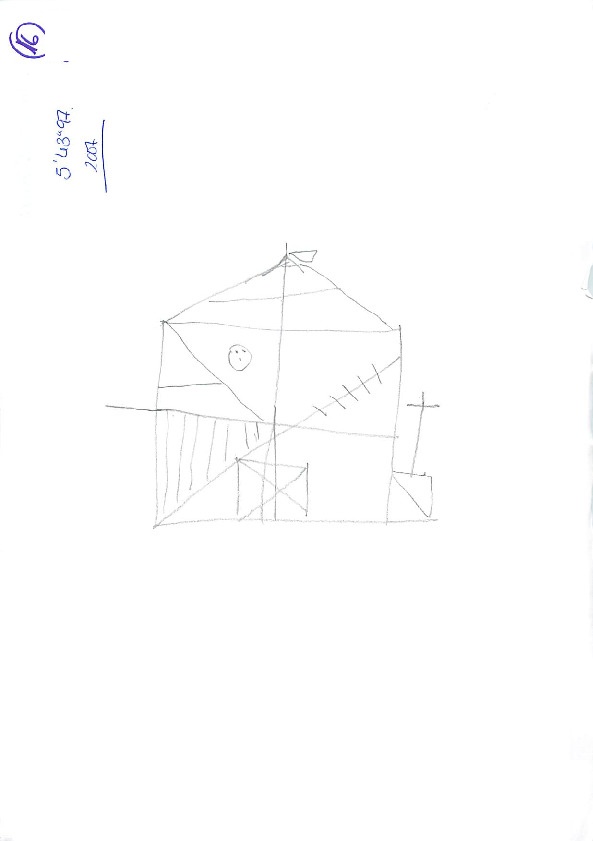 16
5'43"97
2007